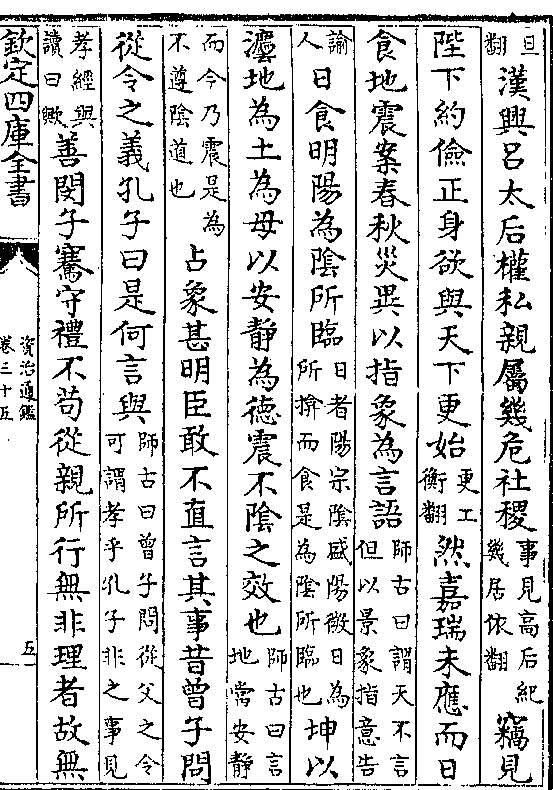 旦翻漢興呂太后權私親屬幾危社稷事見高后紀幾居依翻竊見
陛下約儉正身欲與天下更始更工衡翻然嘉瑞未應而日
食地震案春秋災異以指象為言語師古曰謂天不言但以景象指意告
諭人日食明陽為陰所臨日者陽宗陰盛陽微日為所揜而食是為陰所臨也坤以
灋地為土為母以安靜為德震不陰之效也師古曰言地當安靜
而今乃震是為不遵陰道也占象甚明臣敢不直言其事昔曾子問
從令之義孔子曰是何言與師古曰曾子問從父之令可謂孝乎孔子非之事見
孝經與讀曰歟善閔子騫守禮不苟從親所行無非理者故無
欽定四庫全書
資治通鑑
卷三十五
五